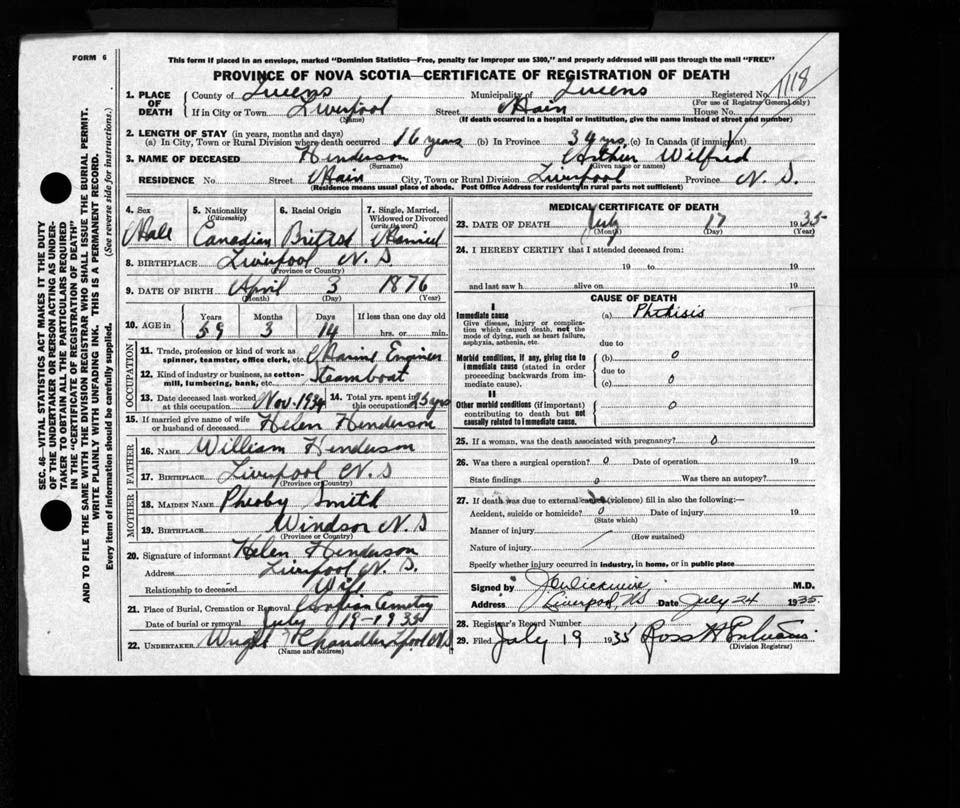 FORM 6
This form if placed in an envelope, marked "Dominion Statistics—Free, penalty for improper use $300," and properly addressed will pass through the mail "FREE"
PROVINCE OF NOVA SCOTIA—CERTIFICATE OF REGISTRATION OF DEATH
1118
1. PLACE OF DEATH County of Queens Municipality of Queens Registered No.
(For use of Registrar General only)
If in City or Town Liverpool Street Main House No.
(Name) (If death occurred in a hospital or institution, give the name instead of street and number)
2. LENGTH OF STAY (in years, months and days)
(a) In City, Town or Rural Division where death occurred 16 years (b) In Province 34 yrs (c) In Canada (if immigrant)
3. NAME OF DECEASED Henderson Arthur Wilfred
(Surname) (Given name or names)
RESIDENCE No Street Main City, Town or Rural Division Liverpool Province N. S.
(Residence means usual place of abode. Post Office Address for residents in rural parts not sufficient)
SEC. 46—VITAL STATISTICS ACT MAKES IT THE DUTY
OF THE UNDERTAKER OR PERSON ACTING AS UNDER-
TAKER TO OBTAIN ALL THE PARTICULARS REQUIRED
IN THE "CERTIFICATE OF REGISTRATION OF DEATH"
AND TO FILE THE SAME WITH THE DIVISION REGISTRAR WHO SHALL ISSUE THE BURIAL PERMIT.
WRITE PLAINLY WITH UNFADING INK. THIS IS A PERMANENT RECORD.
Every item of information should be carefully supplied. (See reverse side for instructions.)
4. Sex 5. Nationality (Citizenship) 6. Racial Origin 7. Single, Married, Widowed or Divorced (write the word)
Male Canadian British Married
8. BIRTHPLACE Liverpool N. S.
(Province or Country)
9. DATE OF BIRTH April 3 1876
(Month) (Day) (Year)
10. AGE in Years Months Days If less than one day old
59 3 14 hrs. or min.
OCCUPATION
11. Trade, profession or kind of work as spinner, teamster, office clerk, etc. Marine Engineer
12. Kind of industry or business, as cotton-mill, lumbering, bank, etc. Steamboat
13. Date deceased last worked at this occupation Nov. 1934 14. Total yrs. spent in this occupation 25 yrs
15. If married give name of wife or husband of deceased Helen Henderson
FATHER
16. NAME William Henderson
17. BIRTHPLACE Liverpool N. S
(Province or Country)
MOTHER
18. MAIDEN NAME Pheoby Smith
19. BIRTHPLACE Windsor N. S
(Province or Country)
20. Signature of informant Helen Henderson
Address Liverpool N. S.
Relationship to deceased Wife
21. Place of Burial, Cremation or Removal Cemetry
Date of burial or removal July 19-1935
22. UNDERTAKER Wright & Chandler Lpool N.S.
(Name and address)
MEDICAL CERTIFICATE OF DEATH
23. DATE OF DEATH July 17 1935
(Month) (Day) (Year)
24. I HEREBY CERTIFY that I attended deceased from:
19 to 19
and last saw h alive on 19
CAUSE OF DEATH
I
Immediate cause (a) Phthisis
Give disease, injury or complication which caused death, not the mode of dying, such as heart failure, asphyxia, asthenia, etc.
due to
Morbid conditions, if any, giving rise to immediate cause (stated in order proceeding backwards from immediate cause). (b) 0
due to
(c) 0
II
Other morbid conditions (if important) contributing to death but not causally related to immediate cause. 0
25. If a woman, was the death associated with pregnancy? 0
26. Was there a surgical operation? 0 Date of operation 19
State findings 0 Was there an autopsy?
27. If death was due to external causes (violence) fill in also the following:—
Accident, suicide or homicide? 0 Date of injury 19
(State which)
Manner of injury
(How sustained)
Nature of injury
Specify whether injury occurred in industry, in home, or in public place
Signed by J C Wickwire M.D.
Address Liverpool, NS Date July 24 1935
28. Registrar's Record Number
29. Filed July 19 1935 Ross H
(Division Registrar)